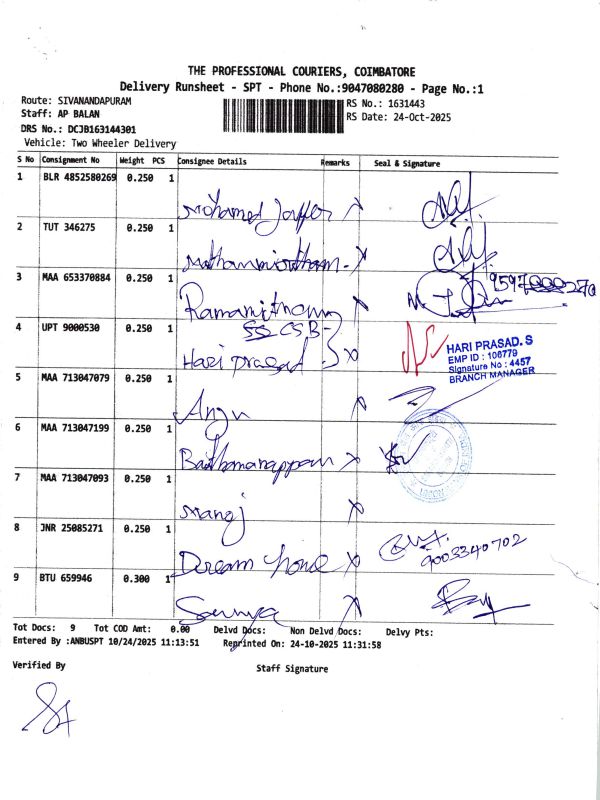 THE PROFESSIONAL COURIERS, COIMBATORE
Delivery Runsheet - SPT - Phone No.:9047080280 - Page No.:1
Route: SIVANANDAPURAM
RS No.: 1631443
Staff: AP BALAN
RS Date: 24-Oct-2025
DRS No.: DCJB163144301
Vehicle: Two Wheeler Delivery
S No Consignment No Weight PCS Consignee Details Remarks Seal & Signature
1 BLR 4852580269 0.250 1
Mohamed Jaffer
2 TUT 346275 0.250 1
3 MAA 653370884 0.250 1
4 UPT 9000530 0.250 1
CSB
Hari prasad
HARI PRASAD. S
EMP ID : 106779
Signature No : 4457
BRANCH MANAGER
5 MAA 713047079 0.250 1
Anju
6 MAA 713047199 0.250 1
7 MAA 713047093 0.250 1
Manoj
8 JNR 25085271 0.250 1
Dream home
9003340702
9 BTU 659946 0.300 1
Sowmya
Tot Docs: 9 Tot COD Amt: 0.00 Delvd Docs: Non Delvd Docs: Delvy Pts:
Entered By :ANBUSPT 10/24/2025 11:13:51 Reprinted On: 24-10-2025 11:31:58
Verified By
Staff Signature